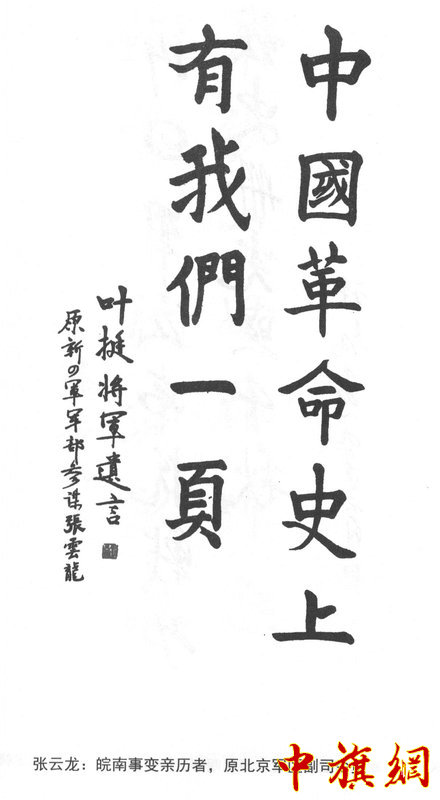 中國革命史上
有我們一頁
叶挺将軍遺言
原新四軍軍部参谋張雲龍
张云龙：皖南事变亲历者，原北京军区副司
中旗網